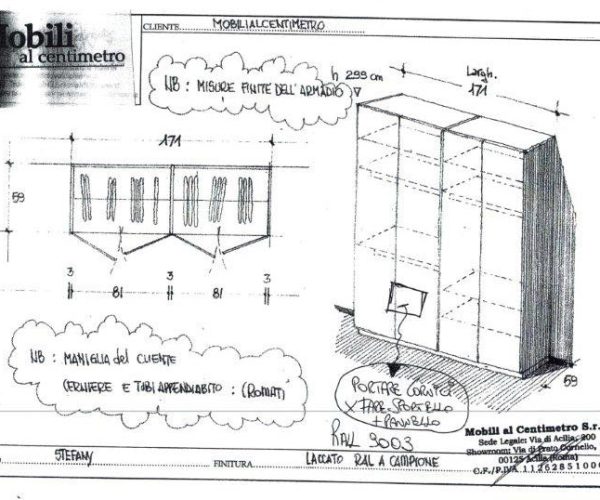 Mobili
al centimetro
CLIENTE MOBILIALCENTIMETRO
NB : MISURE FINITE DELL'ARMADIO
h 299 cm
Largh.
171
171
59
3 3 3
81 81
59
NB : MANIGLIA del CLIENTE
CERNIERE E TUBI APPENDIABITO : (ROMATI)
PORTARE CORNICI
X FARE SPORTELLO
+ PANNELLO
RAL 9003
Mobili al Centimetro S.r.
Sede Legale: Via di Acilia, 200
Showroom: Via di Prato Cornelio,
00125 Acilia (Roma)
C.F./P.IVA 1 1 2 6 2 8 5 1 0 0
STEFANY
FINITURA LACCATO RAL A CAMPIONE